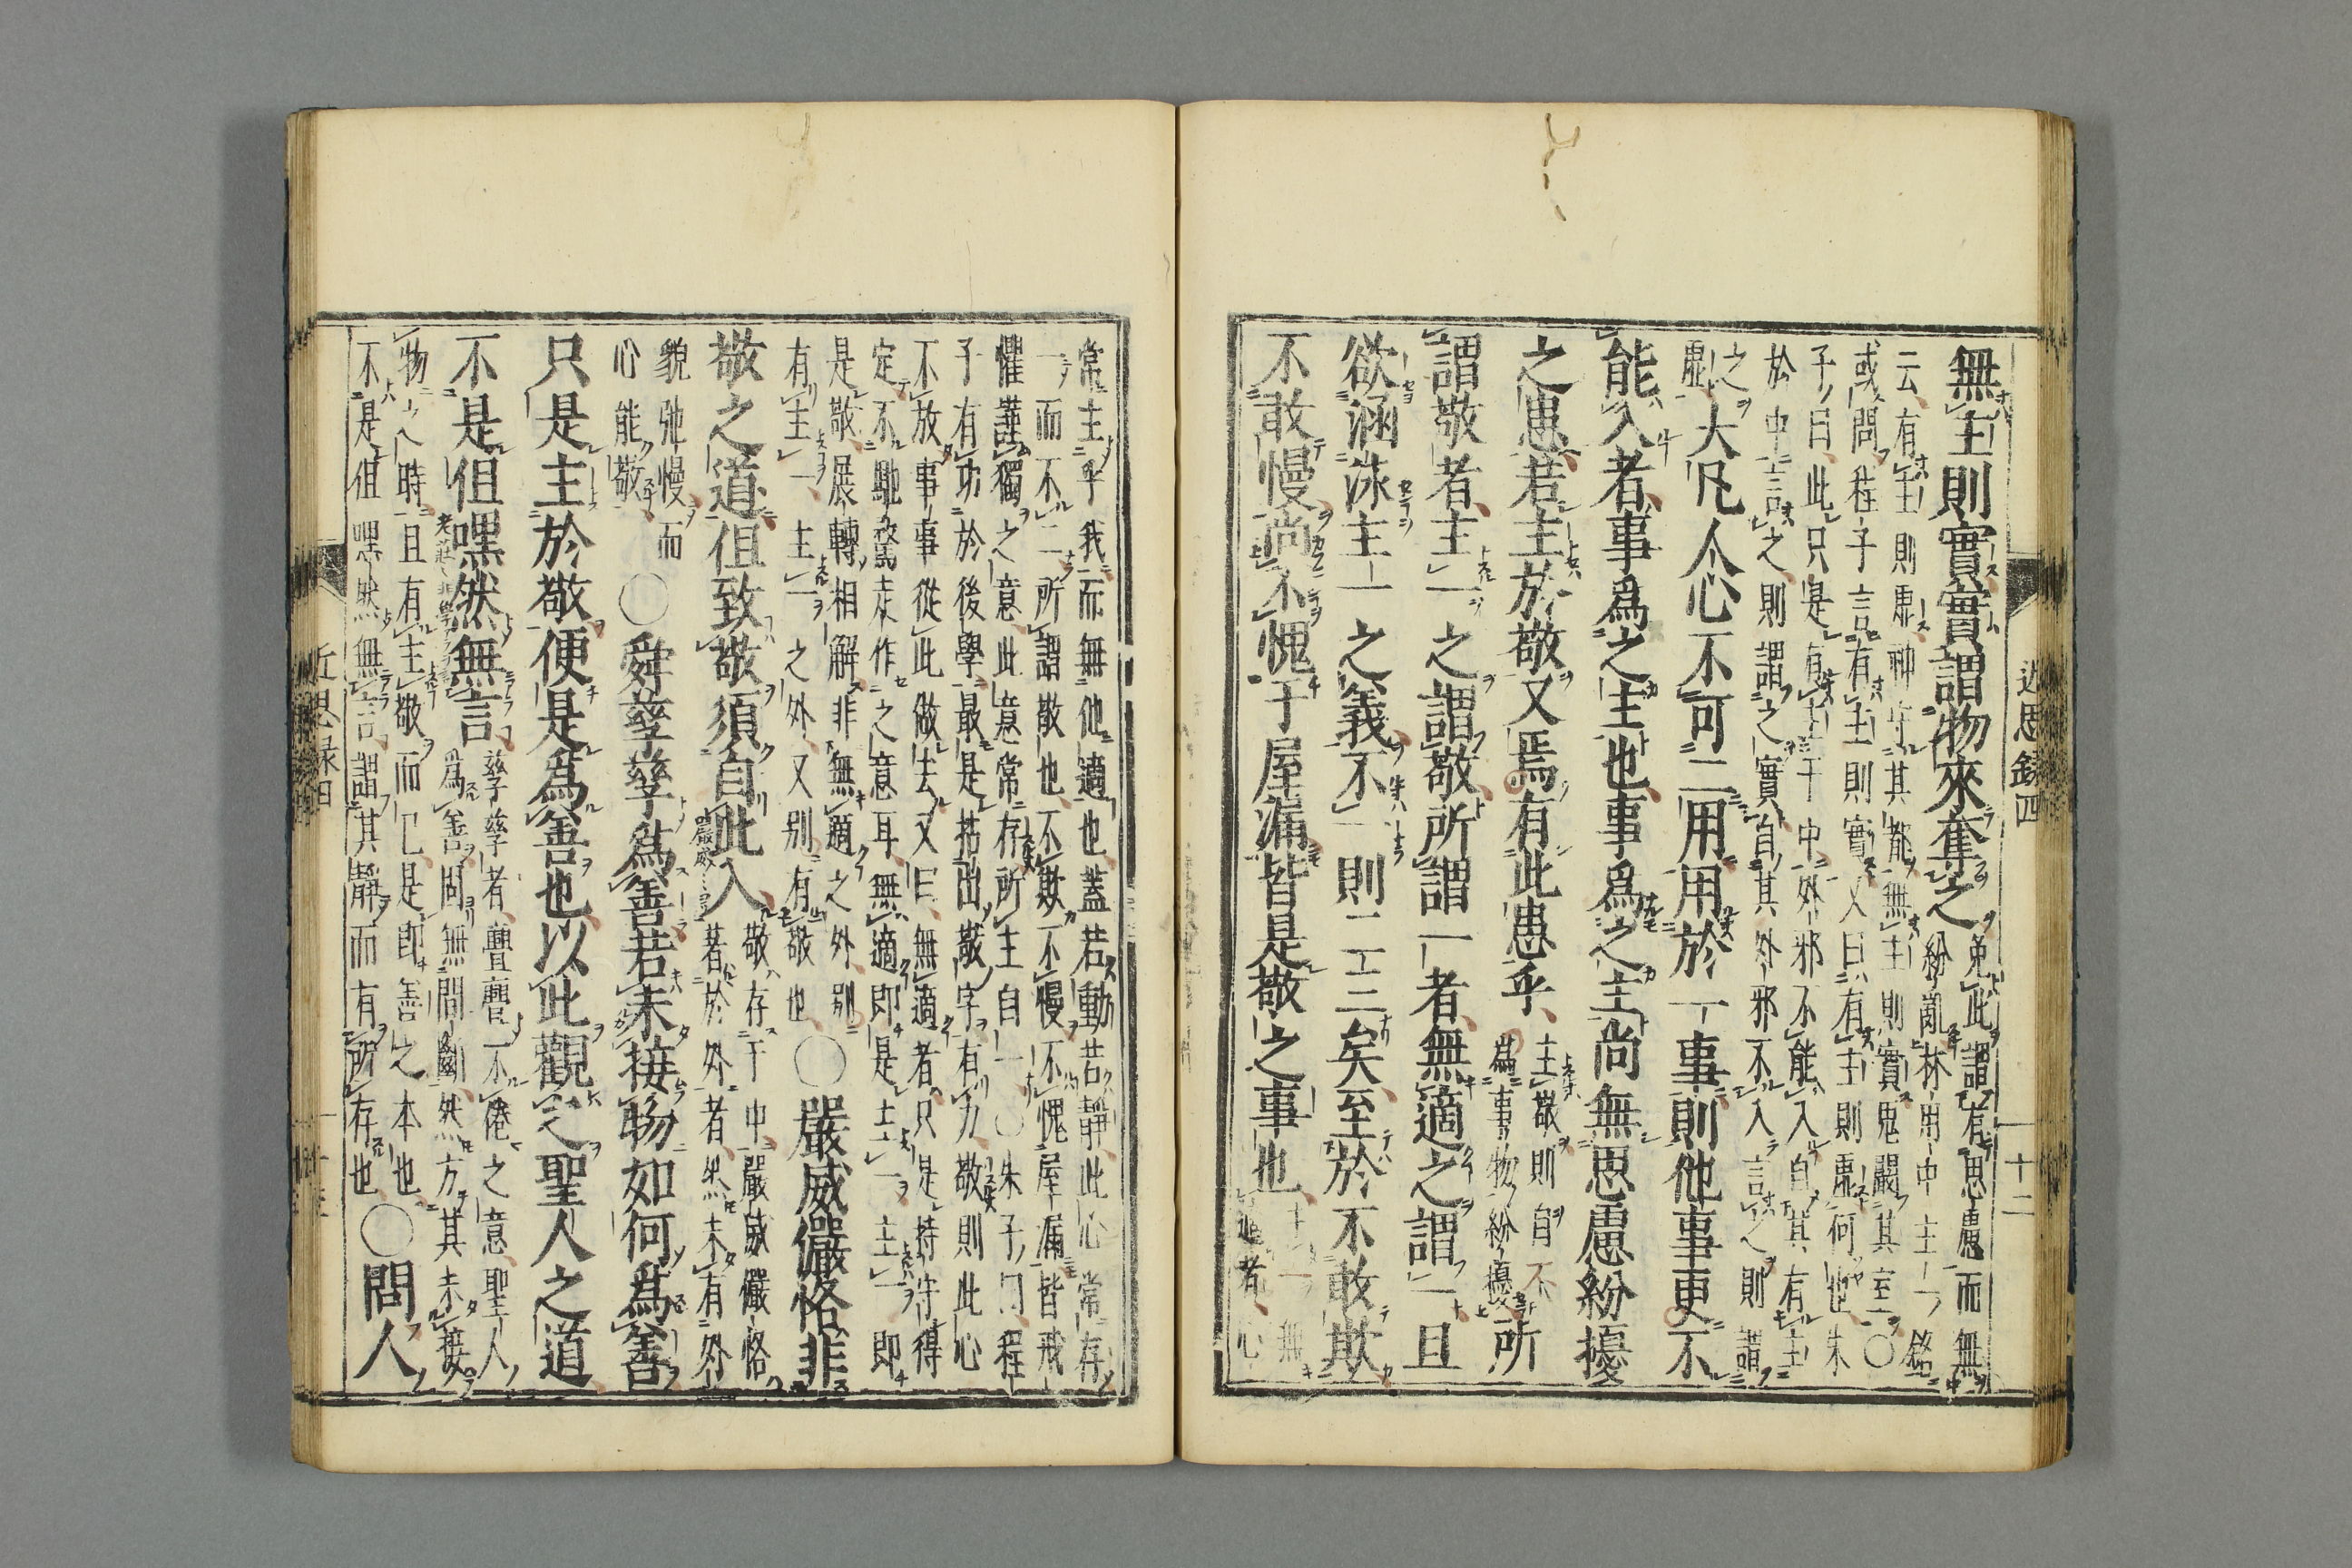 無主則實實謂物來奪之免此謂有思慮而無
紛亂林用中主一銘
云有主則虛神守其都無主則實鬼闞其室〇
或問程子言有主則實又曰有主則虛何也朱
子曰此只是有主于中外邪不能入自其有主
於中言之則謂之實自其外邪不入言之則謂
之虛大凡人心不可二用用於一事則他事更不
能入者事爲之主也事爲之主尚無思慮紛擾
之患若主於敬又焉有此患乎主敬則自不
爲事物紛擾所
謂敬者主一之謂敬所謂一者無適之謂一且
欲涵泳主一之義不一則二三矣至於不敢欺
不敢慢尚不愧于屋漏皆是敬之事也主一無
適者心
近思録四
十二
常主乎我而無他適也蓋若動若静此心常存
一而不二所謂敬也不欺不慢不愧屋漏皆戒
懼謹獨之意此意常存所主自一〇朱子曰程
子有功於後學最是拈出敬字有力敬則此心
不放事事從此做去又曰無適者只是持守得
定不馳騖走作之意耳無適即是主一主一即
是敬展轉相解非無適之外別
有主一主一之外又別有敬也〇嚴威儼恪非
敬之道但致敬須自此入敬存于中嚴威儼恪
著於外者然未有外
貌弛慢而
心能敬〇舜孳孳爲善若未接物如何爲善
只是主於敬便是爲善也以此觀之聖人之道
不是但嘿然無言孳孳者亹亹不倦之意聖人
爲善固無間斷然方其未接
物之時且有主敬而已是即善之本也
不是但嘿然無言謂其靜而有所存也〇問人
近思録四